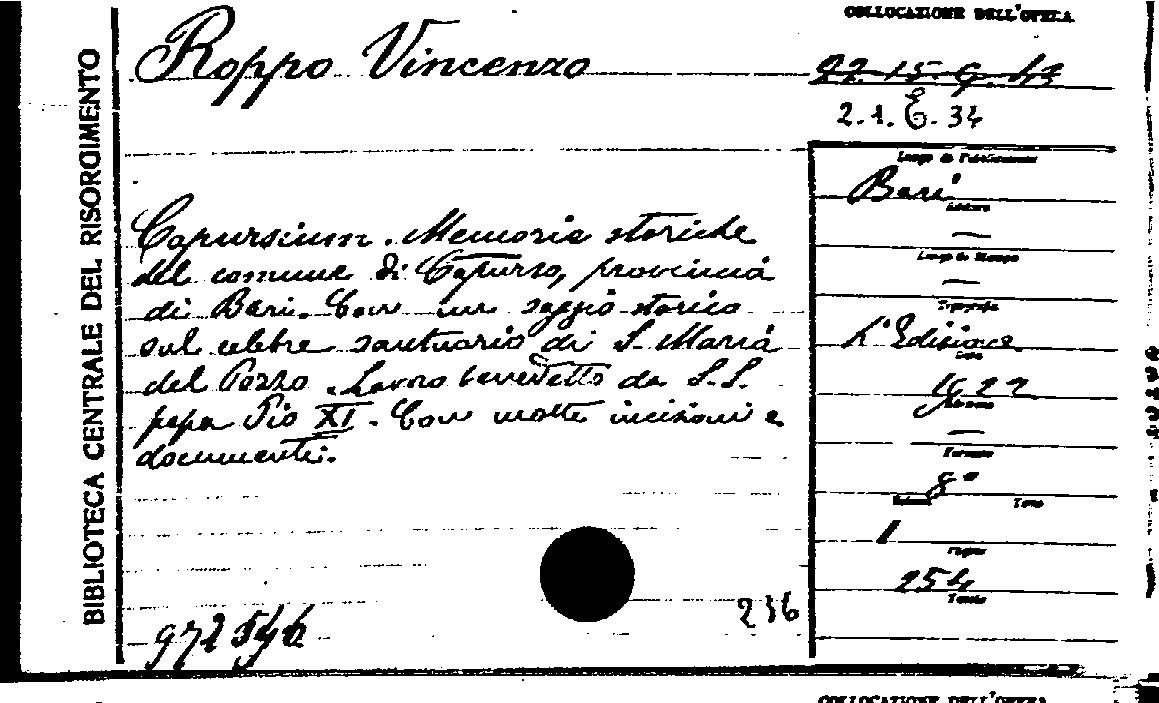 COLLOCAZIONE DELL'OPERA
Roppo Vincenzo
22 15.9.43
2.1.E.34
BIBLIOTECA CENTRALE DEL RISORGIMENTO
Luogo di Pubblicazione
Bari
Editore
—
Luogo di Stampa
—
Tipografia
L'Edizione
Data
1922
Edizione
—
Formato
8°
Volumi Tomo
1
Pagine
254
Tavole
Capursium. Memorie storiche
del comune di Capurso, provincia
di Bari. Con un saggio storico
sul celebre santuario di S. Maria
del Pozzo. Lavoro benedetto da S.S.
papa Pio XI. Con molte incisioni e
documenti.
236
COLLOCAZIONE DELL'OPERA